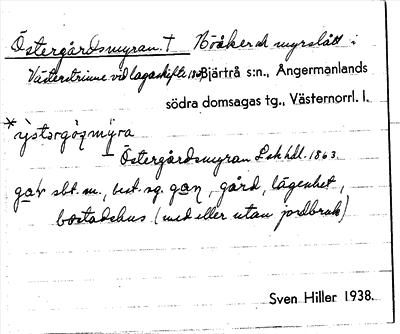 Östergårdsmyran. † Höåker och myrslått i
Västerstrinne vid lagaskifte 1863 Bjärtrå s:n., Ångermanlands
södra domsagas tg., Västernorrl. l.
— Östergårdsmyran Lsk hdl. 1863.
sbt. m., best. sg. gård, lägenhet,
bostadshus (med eller utan jordbruk)
Sven Hiller 1938.